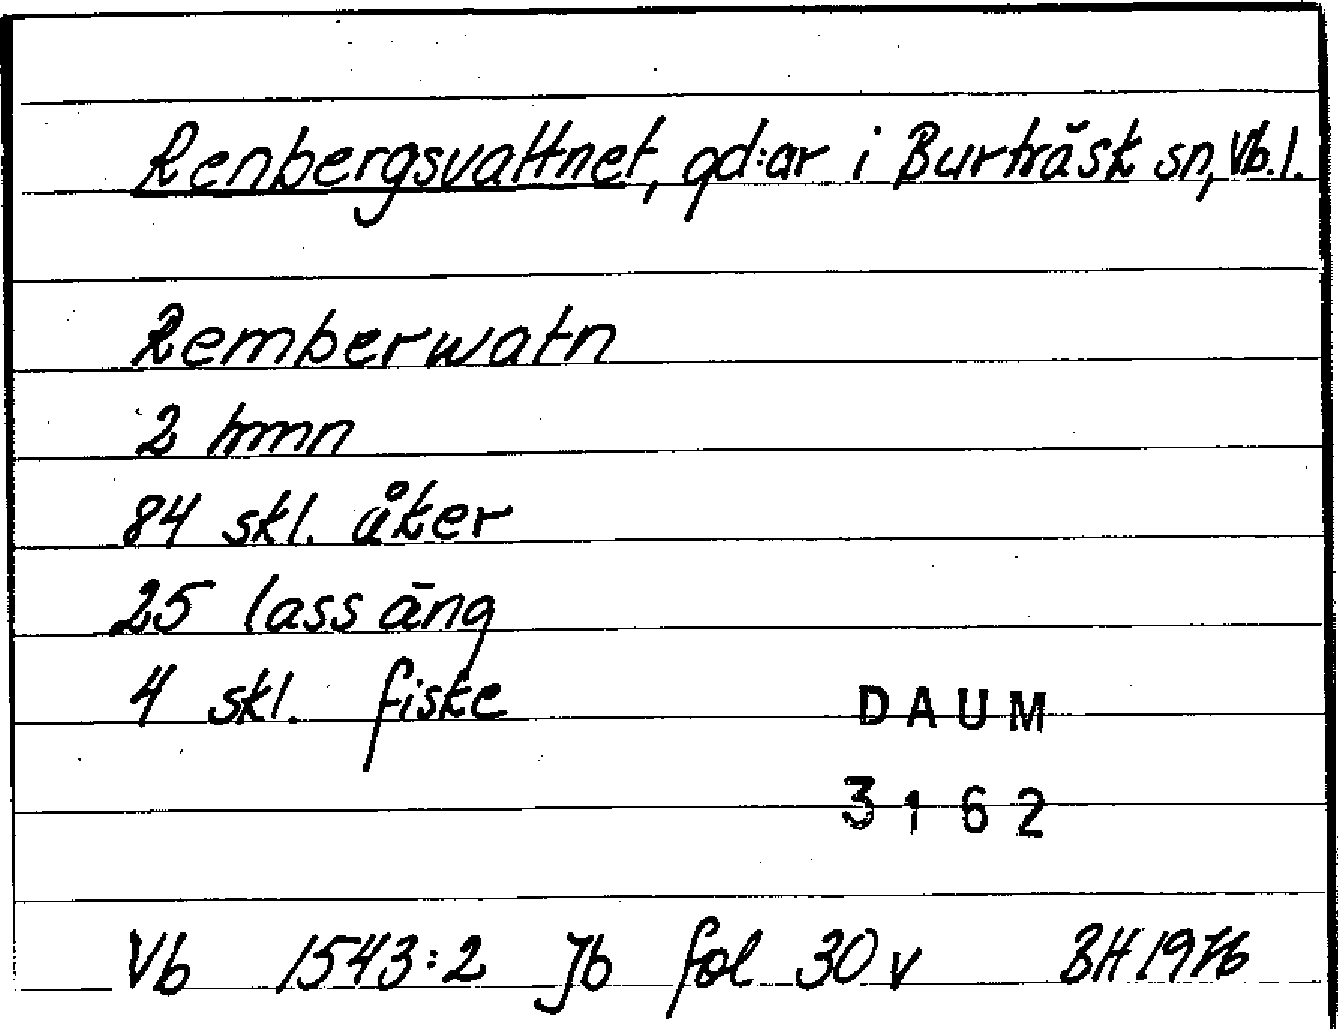 Renbergsvattnet, gd:ar i Burträsk sn, Vb.l.
Remberwatn
2 hmn
84 skl. åker
25 lass äng
4 skl. fiske
DAUM
3162
Vb 1543:2 Jb fol 30 v BH 1976